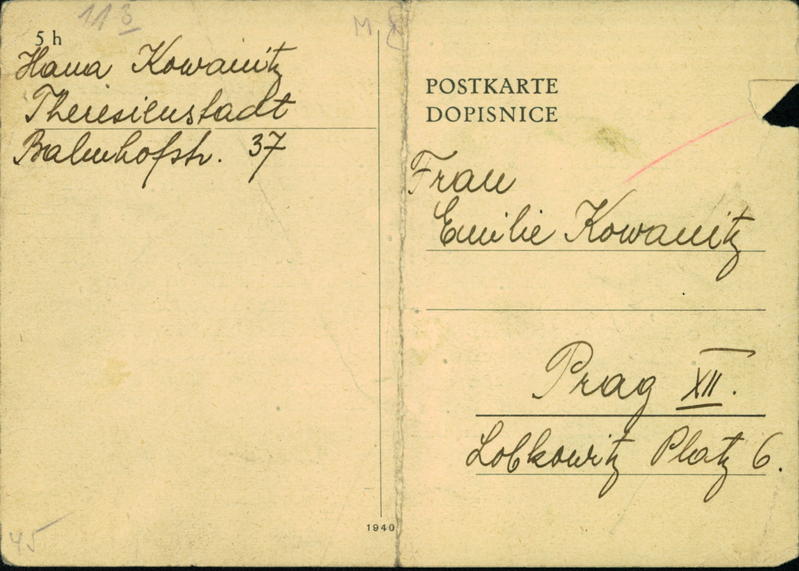 113
5 h
Hana Kowanitz
Theresienstadt
Bahnhofstr. 37
POSTKARTE
DOPISNICE
Frau
Emilie Kowanitz
Prag XII.
Lobkowitz Platz 6.
1940
45